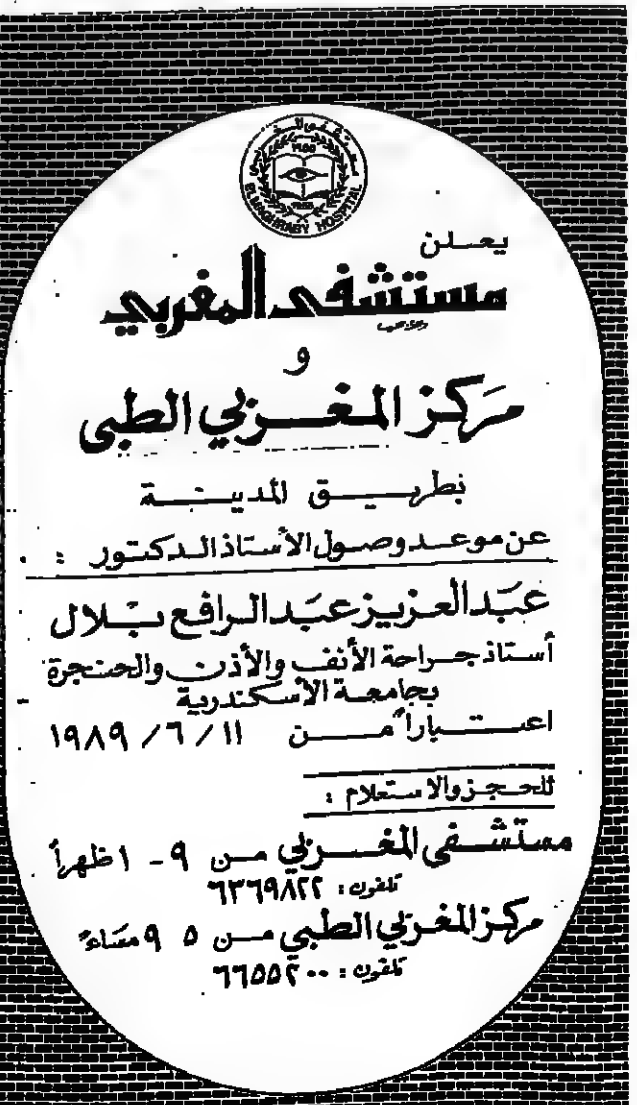 مستشفى المغربي
١٩٥٥
1955
ELMAGHRABY HOSPITAL
يعلن
مستشفى المغربي
و
مركز المغربي الطبي
بطريق المدينة
عن موعد وصول الأستاذ الدكتور :
عبد العزيز عبد الرافع بلال
أستاذ جراحة الأنف والأذن والحنجرة
بجامعة الأسكندرية
اعتباراً من ١١ / ٦ / ١٩٨٩
للحجز والاستعلام :
مستشفى المغربي من ٩ - ١ ظهراً
تلفون : ٦٣٦٩٨٢٢
مركز المغربي الطبي من ٥ ٩ مساءً
تلفون : ٦٦٥٥٢٠٠